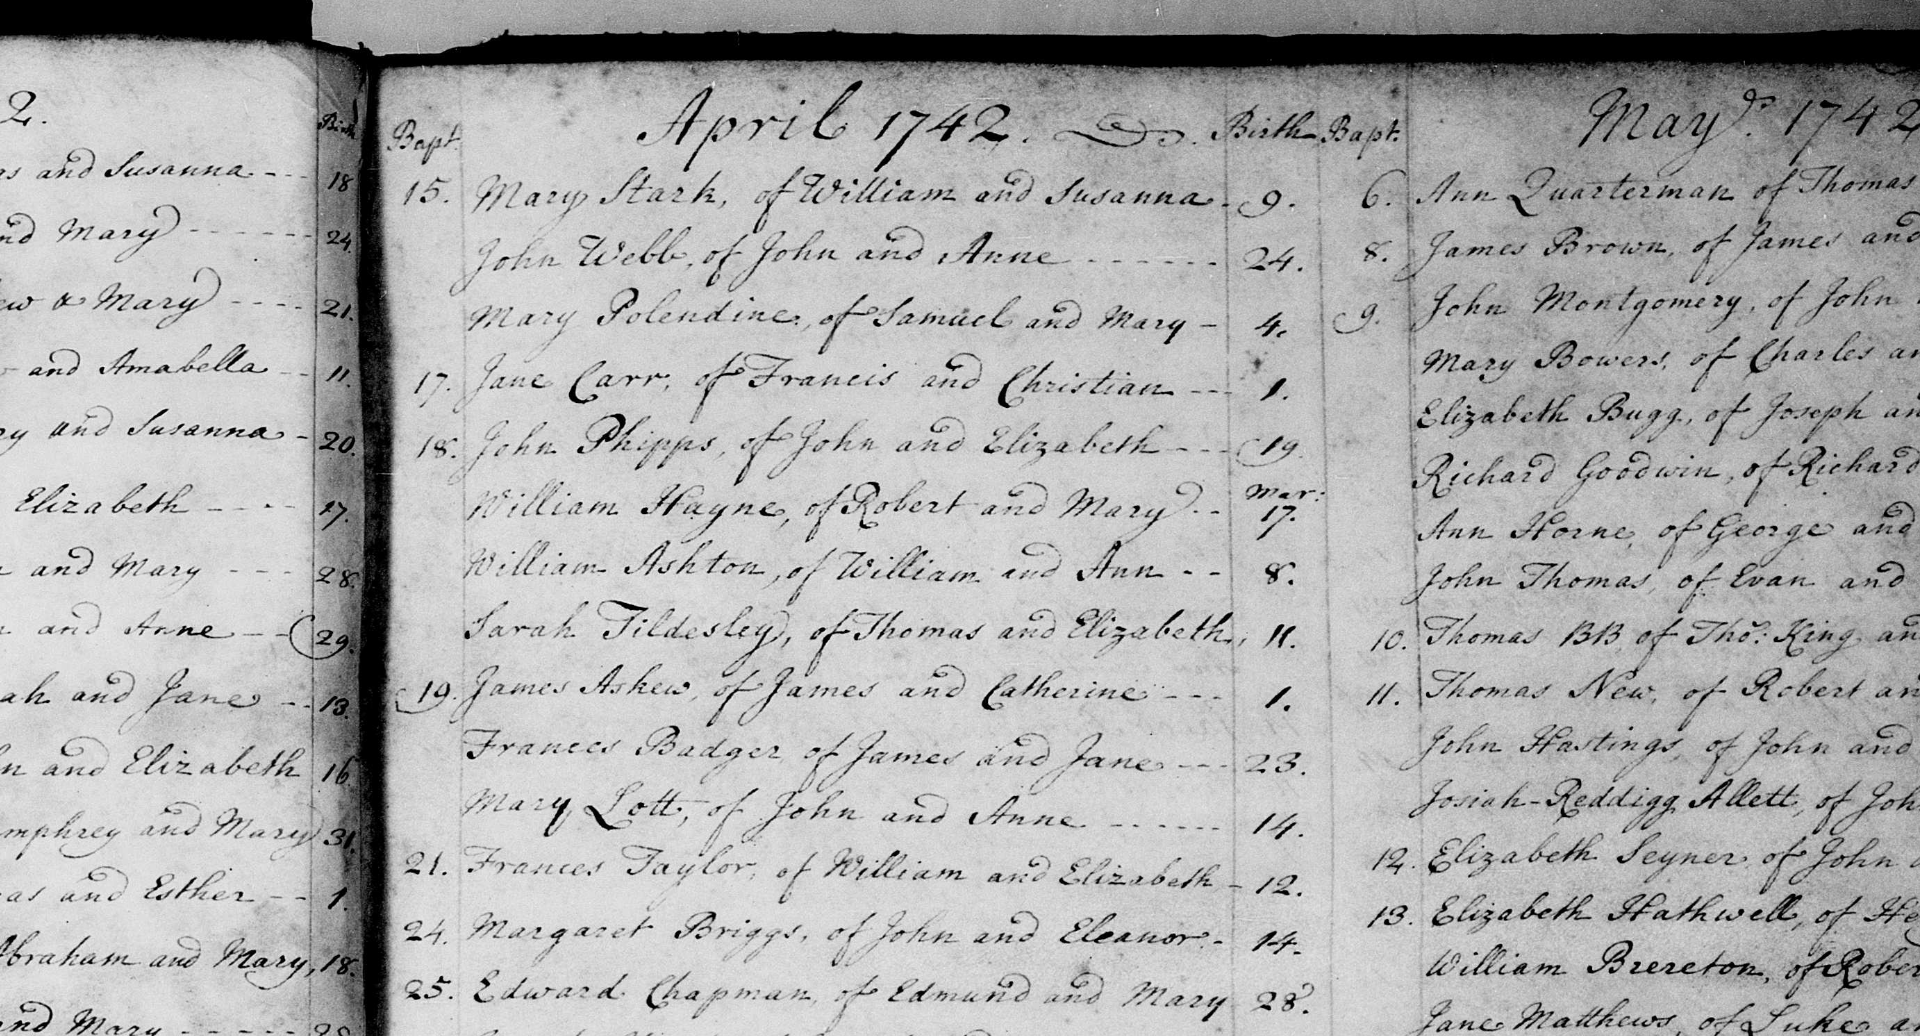 2.
Birth
as and Susanna - - - 18
nd Mary - - - - - - 24.
ew & Mary - - - - 21.
and Amabella - - 11.
ry and Susanna - 20.
Elizabeth - - - - 17.
and Mary - - - 28.
and Anne - - 29.
ah and Jane - - 13.
n and Elizabeth 16
mphrey and Mary 31.
as and Esther - - 1.
Abraham and Mary, 18.
and Mary - - - - -
Bapt. April 1742. Birth
15. Mary Stark, of William and Susanna - 9.
John Webb, of John and Anne - - - - - - 24.
Mary Polendine, of Samuel and Mary - 4.
17. Jane Carr, of Francis and Christian - - - 1.
18. John Phipps, of John and Elizabeth - - - 19
William Hayne, of Robert and Mary - - Mar: 17.
William Ashton, of William and Ann - - 8.
Sarah Tildesley, of Thomas and Elizabeth, 11.
19. James Askew, of James and Catherine - - - 1.
Frances Badger of James and Jane - - - 23.
Mary Lott, of John and Anne - - - - - - 14.
21. Frances Taylor, of William and Elizabeth - 12.
24. Margaret Briggs, of John and Eleanor - 14.
25. Edward Chapman, of Edmund and Mary 28.
Bapt. May. 1742
6. Ann Quarterman of Thomas
8. James Brown, of James and
9. John Montgomery, of John
Mary Bowers, of Charles an
Elizabeth Bugg, of Joseph an
Richard Goodwin, of Richard
Ann Horne, of George and
John Thomas, of Evan and
10. Thomas BB, of Tho: King an
11. Thomas New, of Robert an
John Hastings, of John and
Josiah-Reddigg Allett, of Joh
12. Elizabeth Seyner of John
13. Elizabeth Hathwell, of He
William Brereton, of Rober
Jane Matthews, of Luke a